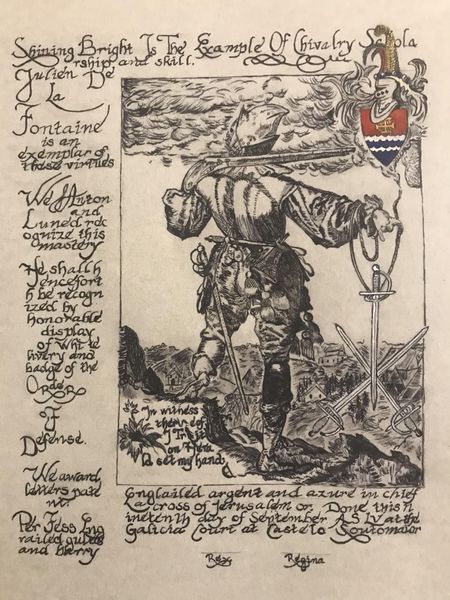 Shining Bright Is The Example Of Chivalry Schola
rship and skill.
Julien De
La
Fontaine
is an
exemplar of
these virtues
We Anton
and
Luned rec
ognize this
mastery
He shall h
enceforth
h be recogn
ized by
honorable
display
of white
livery and
badge of the
Order
of
Defense.
We award
letters pate
nt:
Per fess Eng
railed gules
and barry
In witness
thereof
on
set my hand
Englailed argent and azure in chief
a cross of Jerusalem or. Done this n
ineteenth day of September A.S. LV at the
Galicia Court at Castelo Soutomaior
Rex Regina